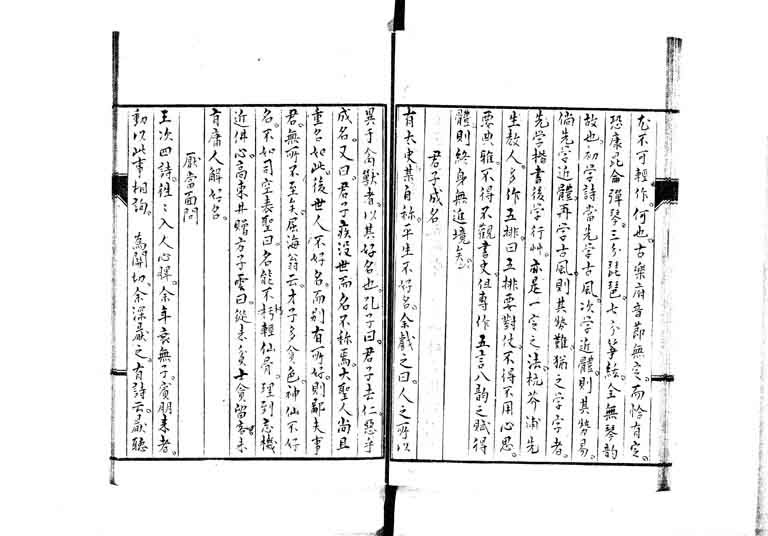 尤不可輕作。何也。古樂府音節無定。而恰有定。
恐康崑崙彈琴。三分琵琶。七分箏絃。全無琴韵
故也。初学詩當先学古風。次学近體。則其勢易。
倘先学近體。再学古風。則其勢難。猶之学字者。
先学楷書。後学行艸。亦是一定之法。杭芥浦先
生教人。多作五排。曰五排要對仗。不得不用心思。
要典雅。不得不觀書史。但專作五言八韵之賦得
體。則終身無進境矣。
君子成名
有太史某自称。平生不好名。余戲之曰。人之所以
異于禽獸者。以其好名也。孔子曰。君子去仁。惡乎
成名。又曰。君子疾没世而名不称焉。大聖人尚且
重名如此。後世人不好名。而别有所好。則鄙夫事
君。無所不至矣。屈海翁云。才子多貪色。神仙不好
名。不如司空表聖曰。名能不朽輕仙骨。理到忘機
近佛心。高東井贈方子雲曰。從来貧士貪留客。未
有庸人解好名。
厭當面問
王次回詩。往々入人心脾。余年衰無子。賓朋来者。
動以此事相詢。 為關切。余深厭之。有詩云。厭聽